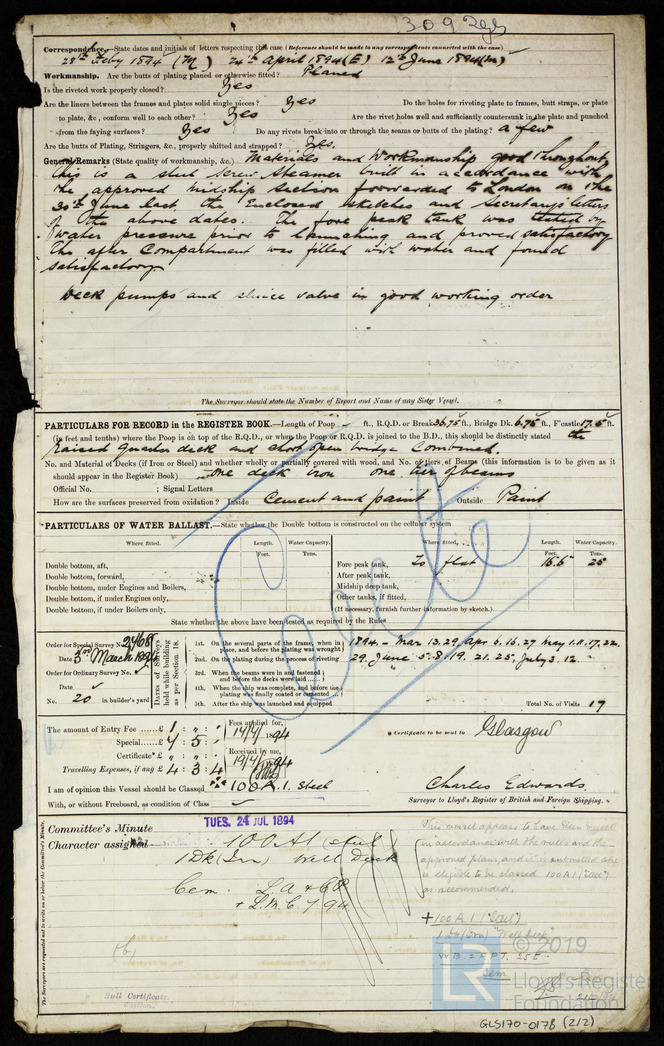 Correspondence.—State dates and initials of letters respecting this case (Reference should be made to any correspondence connected with the case)
28th Feby 1894 (M) 24th April 1894 (E) 12th June 1894 (M)
Workmanship. Are the butts of plating planed or otherwise fitted? Planed
Is the riveted work properly closed? Yes
Are the liners between the frames and plates solid single pieces? Yes Do the holes for riveting plate to frames, butt straps, or plate
to plate, &c., conform well to each other? Yes Are the rivet holes well and sufficiently countersunk in the plate and punched
from the faying surfaces? Yes Do any rivets break into or through the seams or butts of the plating? a few
Are the butts of Plating, Stringers, &c., properly shifted and strapped? Yes.
General Remarks (State quality of workmanship, &c.) Materials and Workmanship good throughout,
this is a steel Screw Steamer built in accordance with
the approved midship section forwarded to London on the
30th June last the Enclosed sketches and Secretary's letters
of the above dates. The fore peak tank was tested by
water pressure prior to launching and proved satisfactory
The after Compartment was filled with water and found
satisfactory
Deck pumps and sluice valve in good working order
The Surveyor should state the Number of Report and Name of any Sister Vessel.
PARTICULARS FOR RECORD in the REGISTER BOOK.—Length of Poop - ft., R.Q.D. or Break 36.75 ft., Bridge Dk. 6.75 ft., F'castle 17.5 ft.
(in feet and tenths) where the Poop is on top of the R.Q.D., or when the Poop or R.Q.D. is joined to the B.D., this should be distinctly stated the
Raised Quarter deck and short open bridge Combined.
No. and Material of Decks (if Iron or Steel) and whether wholly or partially covered with wood, and No. of tiers of Beams (this information is to be given as it
should appear in the Register Book) one deck iron one tier of beams
Official No. ; Signal Letters
How are the surfaces preserved from oxidation? Inside Cement and paint Outside Paint
PARTICULARS OF WATER BALLAST.—State whether the Double bottom is constructed on the cellular system
Where fitted. Length. Water Capacity. Where fitted. Length. Water Capacity.
Feet. Tons. Feet. Tons.
Double bottom, aft, Fore peak tank, To flat 15.6 25
Double bottom, forward, After peak tank,
Double bottom, under Engines and Boilers, Midship deep tank,
Double bottom, if under Engines only, Other tanks, if fitted,
Double bottom, if under Boilers only, (If necessary, furnish further information by sketch.)
State whether the above have been tested as required by the Rules
Order for Special Survey No. 2468
Date 3rd March 1894
Order for Ordinary Survey No.
Date
No. 20 in builder's yard
DATES of Surveys held while building as per Section 18.
1st. On the several parts of the frame, when in place, and before the plating was wrought 1894 - Mar 13. 29 Apr 6. 16. 27 May 1. 11. 17. 22.
2nd. On the plating during the process of riveting 29. June 5. 8. 19. 21. 25. July 3. 12.
3rd. When the beams were in and fastened and before the decks were laid
4th. When the ship was complete, and before the plating was finally coated or cemented
5th. After the ship was launched and equipped
Total No. of Visits 17
The amount of Entry Fee £ 1 : " : " Fees applied for,
Special £ 4 5 : 14/7/1894
Certificate £ " : " : Received by me,
Travelling Expenses, if any £ 4 3 4 19/7/94
Certificate to be sent to Glasgow
I am of opinion this Vessel should be Classed 100 A. 1. Steel
With, or without Freeboard, as condition of Class
Charles Edwards
Surveyor to Lloyd's Register of British and Foreign Shipping.
Committee's Minute TUES. 24 JUL 1894
Character assigned 100 A1 (steel
1 Dk (Irn) Well Deck
Cem. L.A & CP
+ L.M.C. 7.94
This vessel appears to have been built
in accordance with the rules and the
approved plans, and it is submitted she
is eligible to be classed 100 A 1 (Steel)
as recommended.
+100 A 1 (Steel)
1 Dk (Irn) "Well Deck"
Cem
The Surveyors are requested not to write on or below the Committee's Minute.
Hull Certificate.
LR
© 2019
Lloyd's Register
Foundation
GLS170-0178 (2/2)